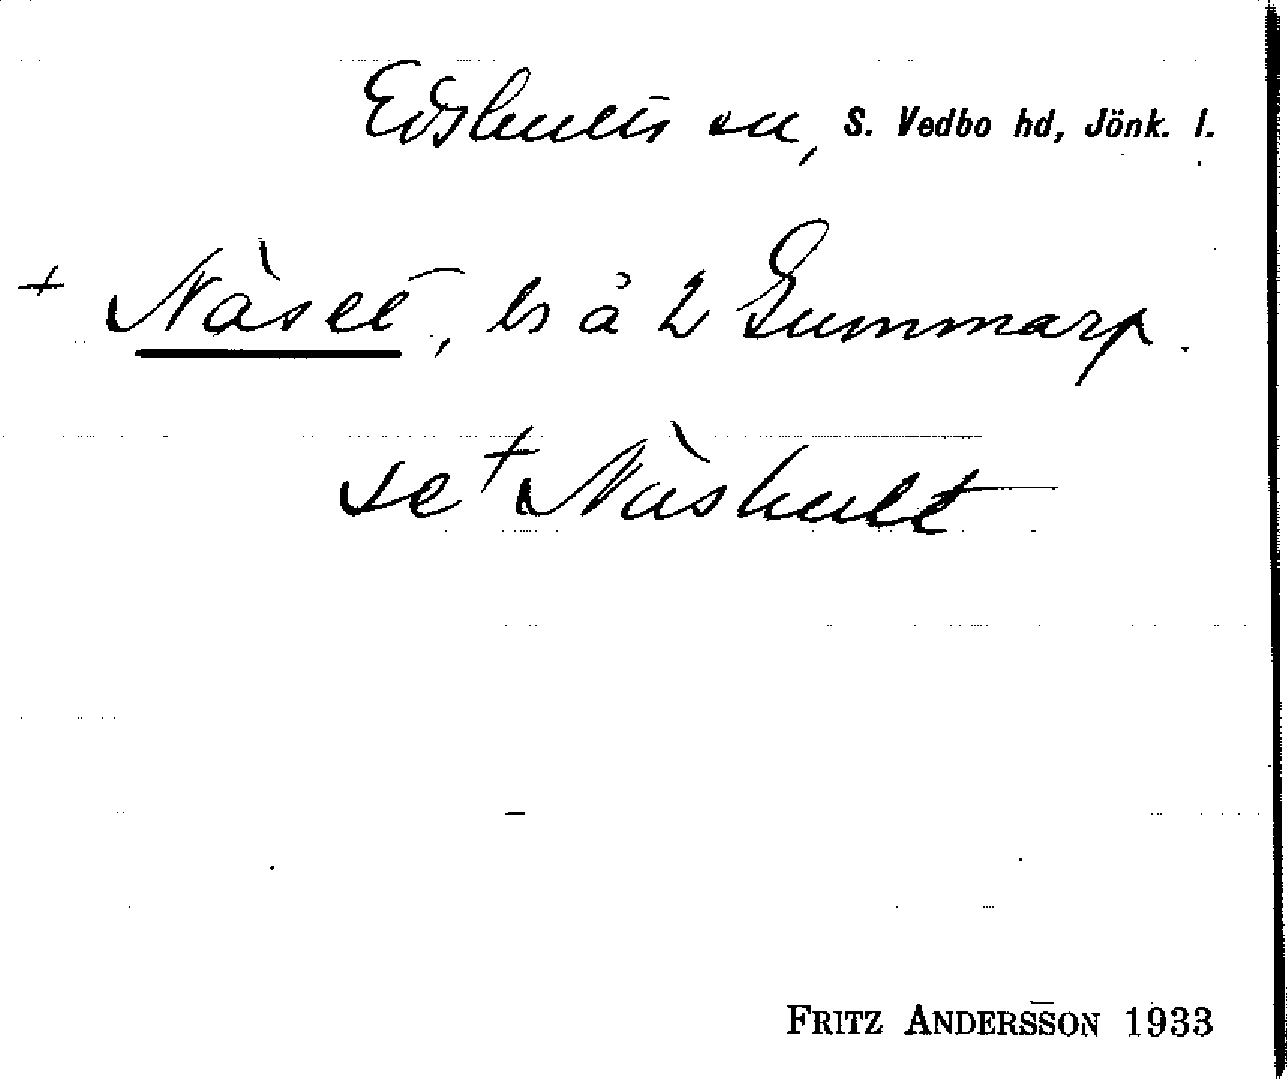 Edshults sn, S. Vedbo hd, Jönk. l.
+ Näset, ls å 2 Gummarp.
se + Näshult
FRITZ ANDERSSON 1933